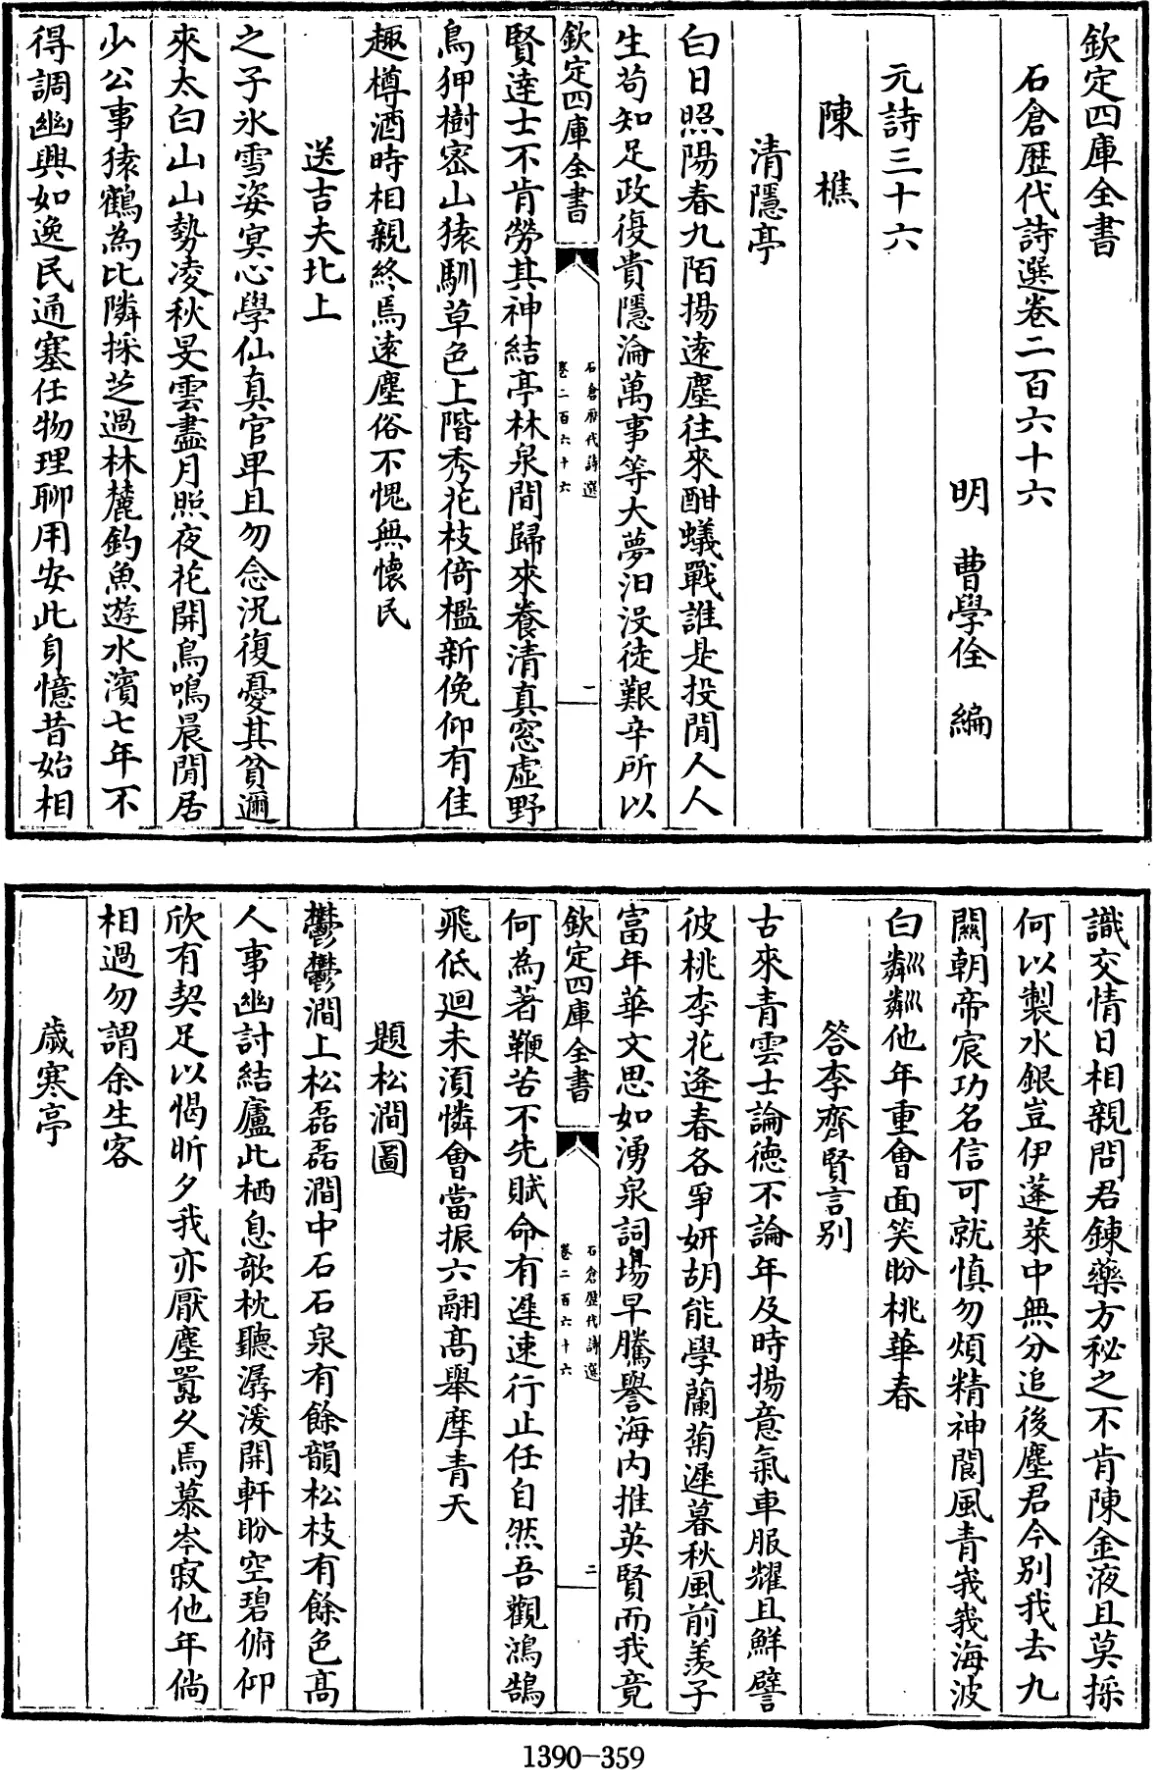 欽定四庫全書
石倉歴代詩選卷二百六十六
明　曹學佺　編
元詩三十六
陳樵
清隱亭
白日照陽春九陌揚遠塵往來酣蟻戰誰是投閒人人
生苟知足政復貴隱淪萬事等大夢汩没徒艱辛所以
欽定四庫全書
石倉歴代詩選
卷二百六十六
一
賢達士不肯勞其神結亭林泉間歸來養清真窓虚野
鳥狎樹宻山猿馴草色上階秀花枝倚檻新俛仰有佳
趣樽酒時相親終焉遠塵俗不愧無懷民
送吉夫北上
之子氷雪姿冥心學仙真官卑且勿念況復憂其貧邇
來太白山山勢凌秋旻雲盡月照夜花開鳥鳴晨閒居
少公事猿鶴為比隣採芝過林麓釣魚遊水濱七年不
得調幽興如逸民通塞任物理聊用安此身憶昔始相
識交情日相親問君鍊藥方秘之不肯陳金液且莫採
何以製水銀豈伊蓬萊中無分追後塵君今别我去九
闗朝帝宸功名信可就慎勿煩精神閬風青峩峩海波
白粼粼他年重會面笑盼桃華春
答李齊賢言别
古來青雲士論徳不論年及時揚意氣車服耀且鮮譬
彼桃李花逄春各爭妍胡能學蘭菊遲暮秋風前羨子
富年華文思如湧泉詞場早騰譽海内推英賢而我竟
欽定四庫全書
石倉歴代詩選
卷二百六十六
二
何為著鞭苦不先賦命有遲速行止任自然吾觀鴻鵠
飛低迴未湏憐會當振六翮髙舉摩青天
題松澗圖
鬱鬱澗上松磊磊澗中石石泉有餘韻松枝有餘色髙
人事幽討結廬此栖息欹枕聽潺湲開軒盼空碧俯仰
欣有契足以愒昕夕我亦厭塵囂久焉慕岑寂他年倘
相過勿謂余生客
歳寒亭
1390-359